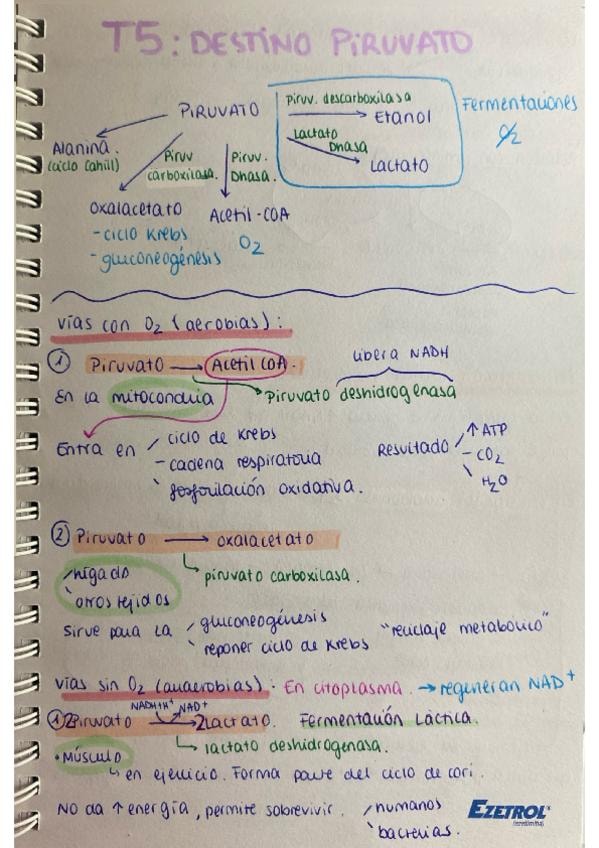 T5: DESTINO PIRUVATO
PIRUVATO
Piruv. descarboxilasa
Etanol
Fermentaciones
O2
Lactato
Dhasa
Lactato
Alanina.
(ciclo Cahill)
Piruv
carboxilasa.
Piruv.
Dhasa.
Oxalacetato
Acetil-COA
- ciclo Krebs
O2
- gluconeogénesis
vías con O2 (aerobias):
① Piruvato → Acetil COA.
Libera NADH
En la mitocondria
piruvato deshidrogenasa
Entra en
ciclo de Krebs
- cadena respiratoria
fosforilación oxidativa.
Resultado
↑ ATP
- CO2
H2O
② Piruvato → oxalacetato
piruvato carboxilasa.
hígado
otros tejidos
Sirve para la
gluconeogénesis
reponer ciclo de Krebs
"reciclaje metabólico"
vías sin O2 (anaerobias). En citoplasma. → regeneran NAD+
NADH+H+ NAD+
① 2Piruvato → 2Lactato. Fermentación Láctica.
lactato deshidrogenasa.
• Músculo
en ejercicio. Forma parte del ciclo de cori.
No da ↑ energía, permite sobrevivir.
humanos
bacterias.
EZETROL